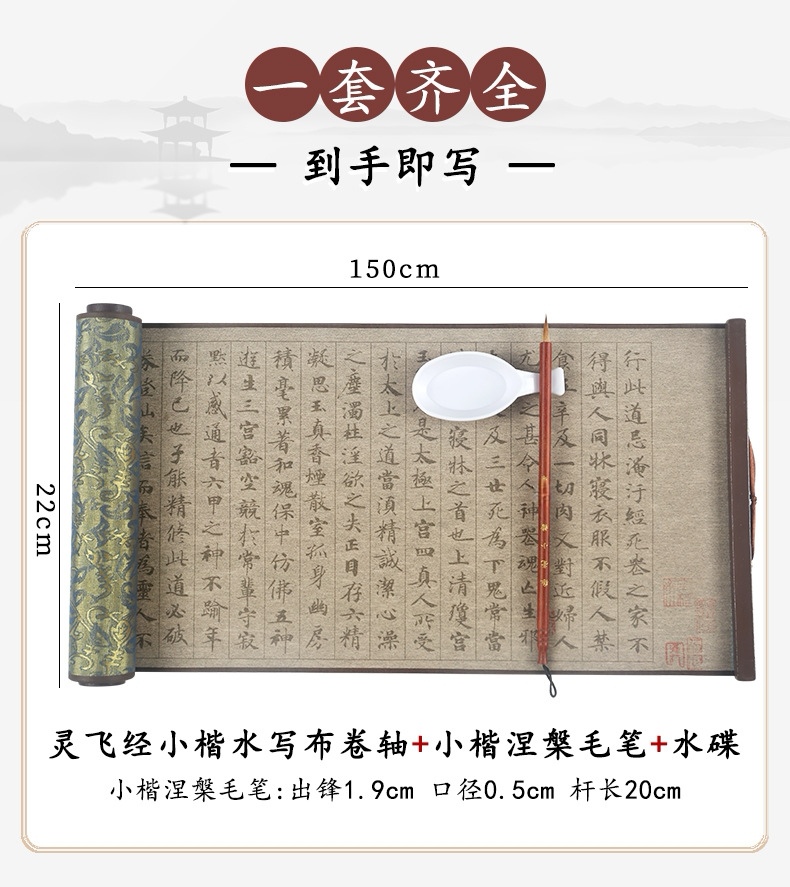 一套齐全
到手即写
150cm
22cm
行此道忌淹汙經死喪之家不
得與人同牀寢衣服不假人禁
食 辛及一切肉又對近婦人
尤 之甚令人神喪魂亡生邪
及三世死為下鬼常當
寢牀之首也上清瓊宮
玉 是太極上宮四真人所受
於太上之道當湏精誠潔心澡
之塵濁 淫欲之失正目存六精
凝思玉真香煙散室孤身幽房
積毫累著和魂保中仿佛五神
遊生三宮豁空競於常輩守寂
黙以感通者六甲之神不踰年
而降己也子能精修此道必破
登山 言而奉者為靈人不
灵飞经小楷水写布卷轴+小楷涅槃毛笔+水碟
小楷涅槃毛笔:出锋1.9cm 口径0.5cm 杆长20cm